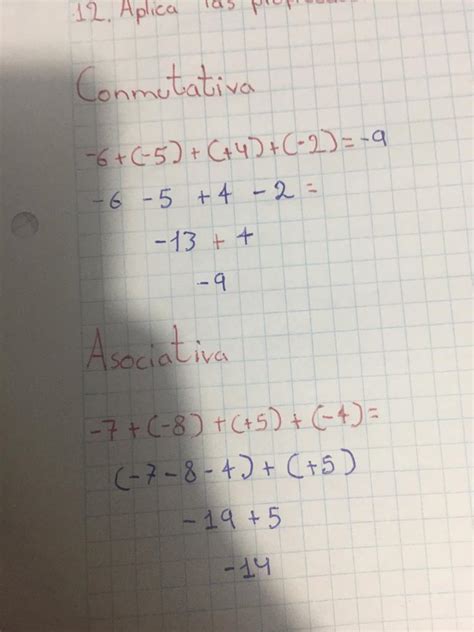 12. Aplica las
Conmutativa
-6+(-5)+(+4)+(-2)=-9
-6 -5 +4 -2 =
-13 + 4
-9
Asociativa
-7+(-8)+(+5)+(-4)=
(-7-8-4)+(+5)
-19+5
-14